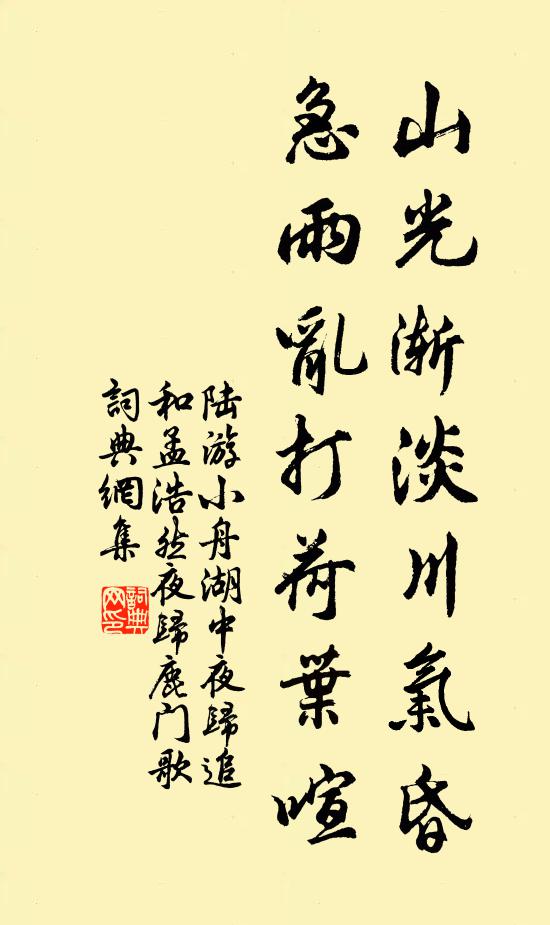 山光漸淡川氣昏
急雨亂打荷葉喧
陆游小舟湖中夜歸追
和孟浩然夜歸鹿门歌
詞典網集
詞典
网印